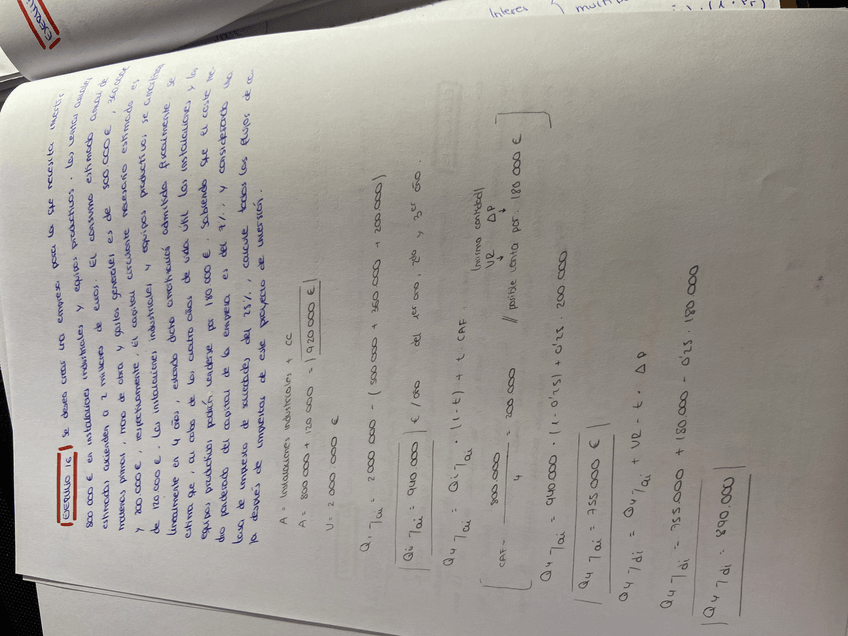 EJERCICIO 16 Se desea crear una empresa para lo que necesita invertir
800 000 € en instalaciones industriales y equipos productivos. Las ventas anuales
estimadas ascienden a 2 millones de euros. El consumo estimado anual de
materias primas, mano de obra y gastos generales es de 500 000 €, 360 000€
y 200 000 €, respectivamente. El capital circulante necesario estimado es
de 120 000 €. Las instalaciones industriales y equipos productivos se amortizan
linealmente en 4 años, estando dicha amortización admitida fiscalmente. Se
estima que, al cabo de los cuatro años de vida útil las instalaciones y los
equipos productivos podrán venderse por 180 000 €. Sabiendo que el coste me-
dio ponderado del capital de la empresa es del 9%, y considerando una
tasa de impuesto de sociedades del 25%, calcule todos los flujos de ca
ja después de impuestos de este proyecto de inversión.
A = Instalaciones industriales + CC
A = 800 000 + 120 000 = 920 000 €
V = 2 000 000 €
Qi ai = 2 000 000 - (500 000 + 360 000 + 200 000)
Qi ai = 940 000 € / año del 1er año, 2do y 3er año.
Q4 ai = Qi ai · (1 - t) + t · CAF
(misma cantidad)
VR ΔP
CAF = 800 000 / 4 = 200 000 // posible venta por 180 000 €
Q4 ai = 940 000 · (1 - 0'25) + 0'25 · 200 000
Q4 ai = 755 000 €
Q4 di = Q4 ai + VR - t · ΔP
Q4 di = 755 000 + 180 000 - 0'25 · 180 000
Q4 di = 890.000
Interes
multi
EJERCI